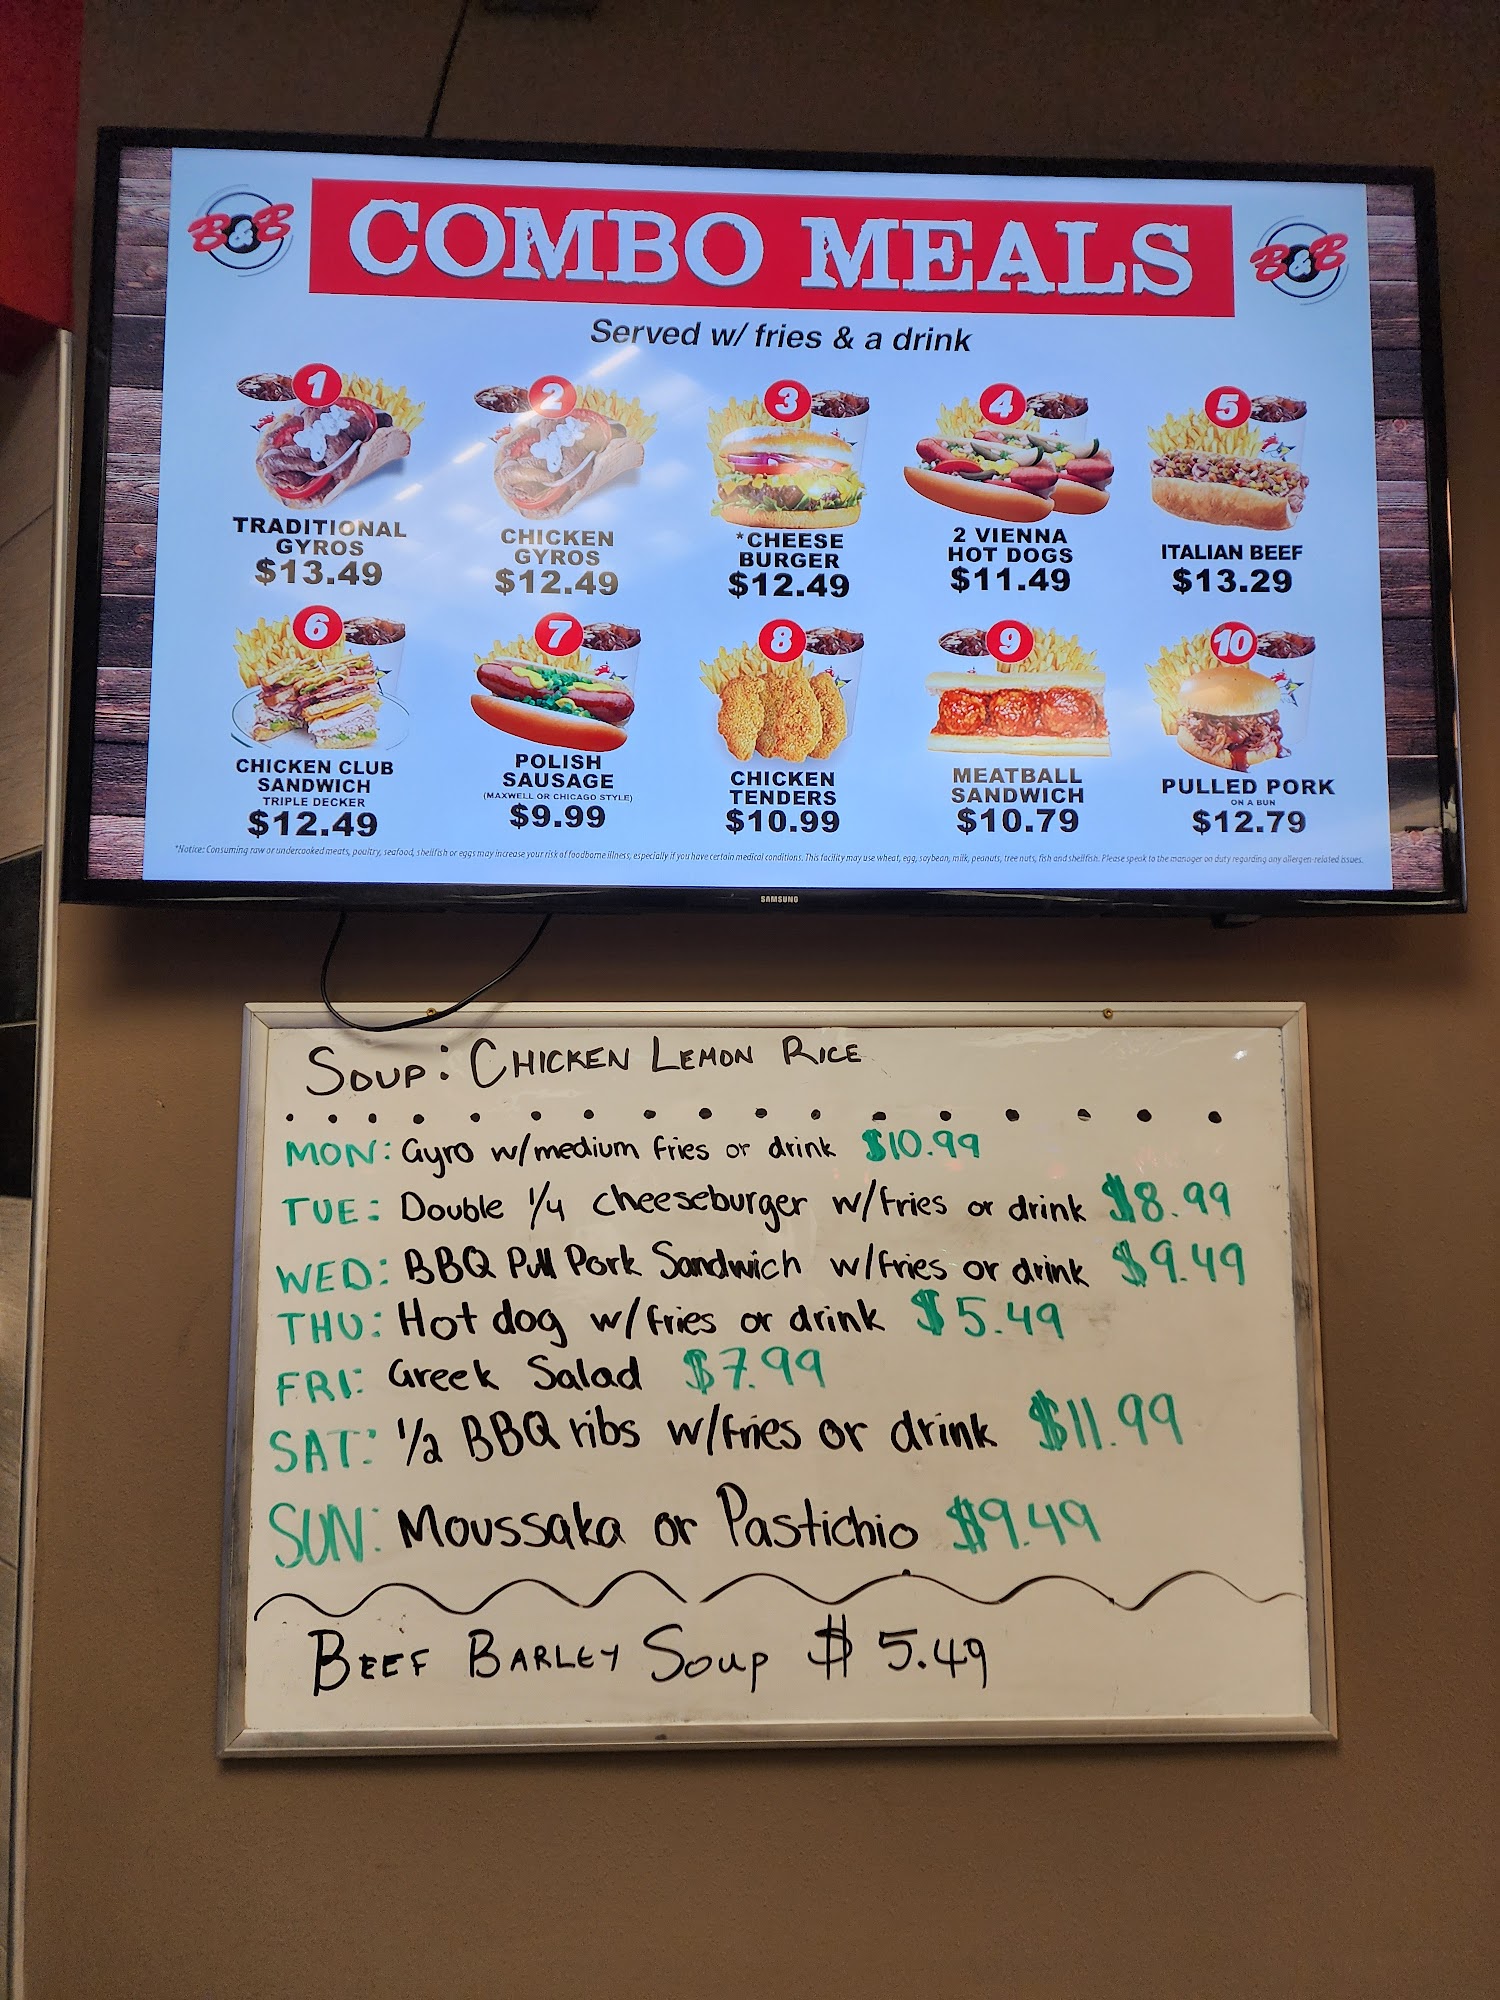 B&B COMBO MEALS B&B
Served w/ fries & a drink
1
TRADITIONAL
GYROS
$13.49
2
CHICKEN
GYROS
$12.49
3
*CHEESE
BURGER
$12.49
4
2 VIENNA
HOT DOGS
$11.49
5
ITALIAN BEEF
$13.29
6
CHICKEN CLUB
SANDWICH
TRIPLE DECKER
$12.49
7
POLISH
SAUSAGE
(MAXWELL OR CHICAGO STYLE)
$9.99
8
CHICKEN
TENDERS
$10.99
9
MEATBALL
SANDWICH
$10.79
10
PULLED PORK
ON A BUN
$12.79
*Notice: Consuming raw or undercooked meats, poultry, seafood, shellfish or eggs may increase your risk of foodborne illness, especially if you have certain medical conditions. This facility may use wheat, egg, soybean, milk, peanuts, tree nuts, fish and shellfish. Please speak to the manager on duty regarding any allergen-related issues.
SAMSUNG
SOUP: CHICKEN LEMON RICE
MON: Gyro w/medium fries or drink $10.99
TUE: Double 1/4 cheeseburger w/fries or drink $8.99
WED: BBQ Pull Pork Sandwich w/fries or drink $9.49
THU: Hot dog w/fries or drink $5.49
FRI: Greek Salad $7.99
SAT: 1/2 BBQ ribs w/fries or drink $11.99
SUN: Moussaka or Pastichio $9.49
BEEF BARLEY SOUP $5.49